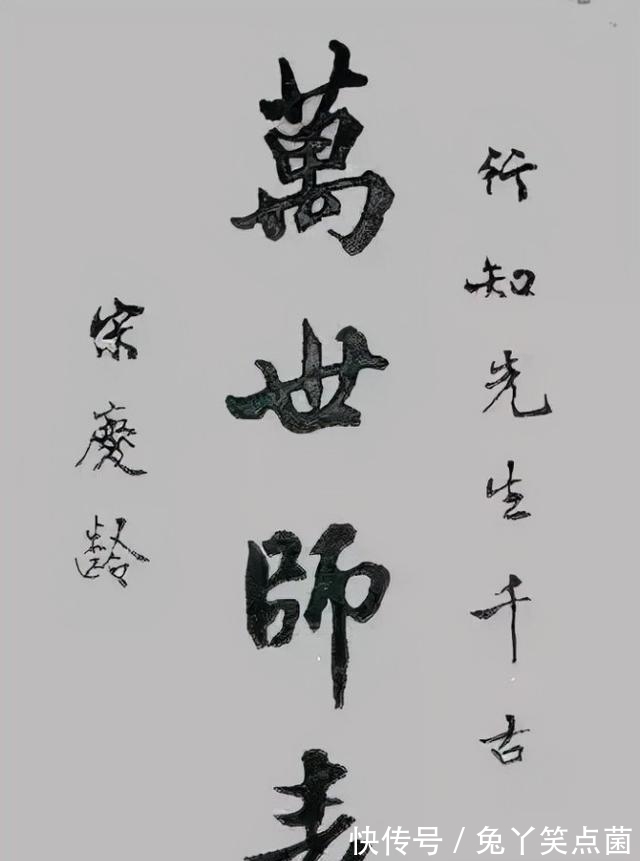 行知先生千古
萬世師表
宋慶齡
快传号 / 兔丫笑点菌